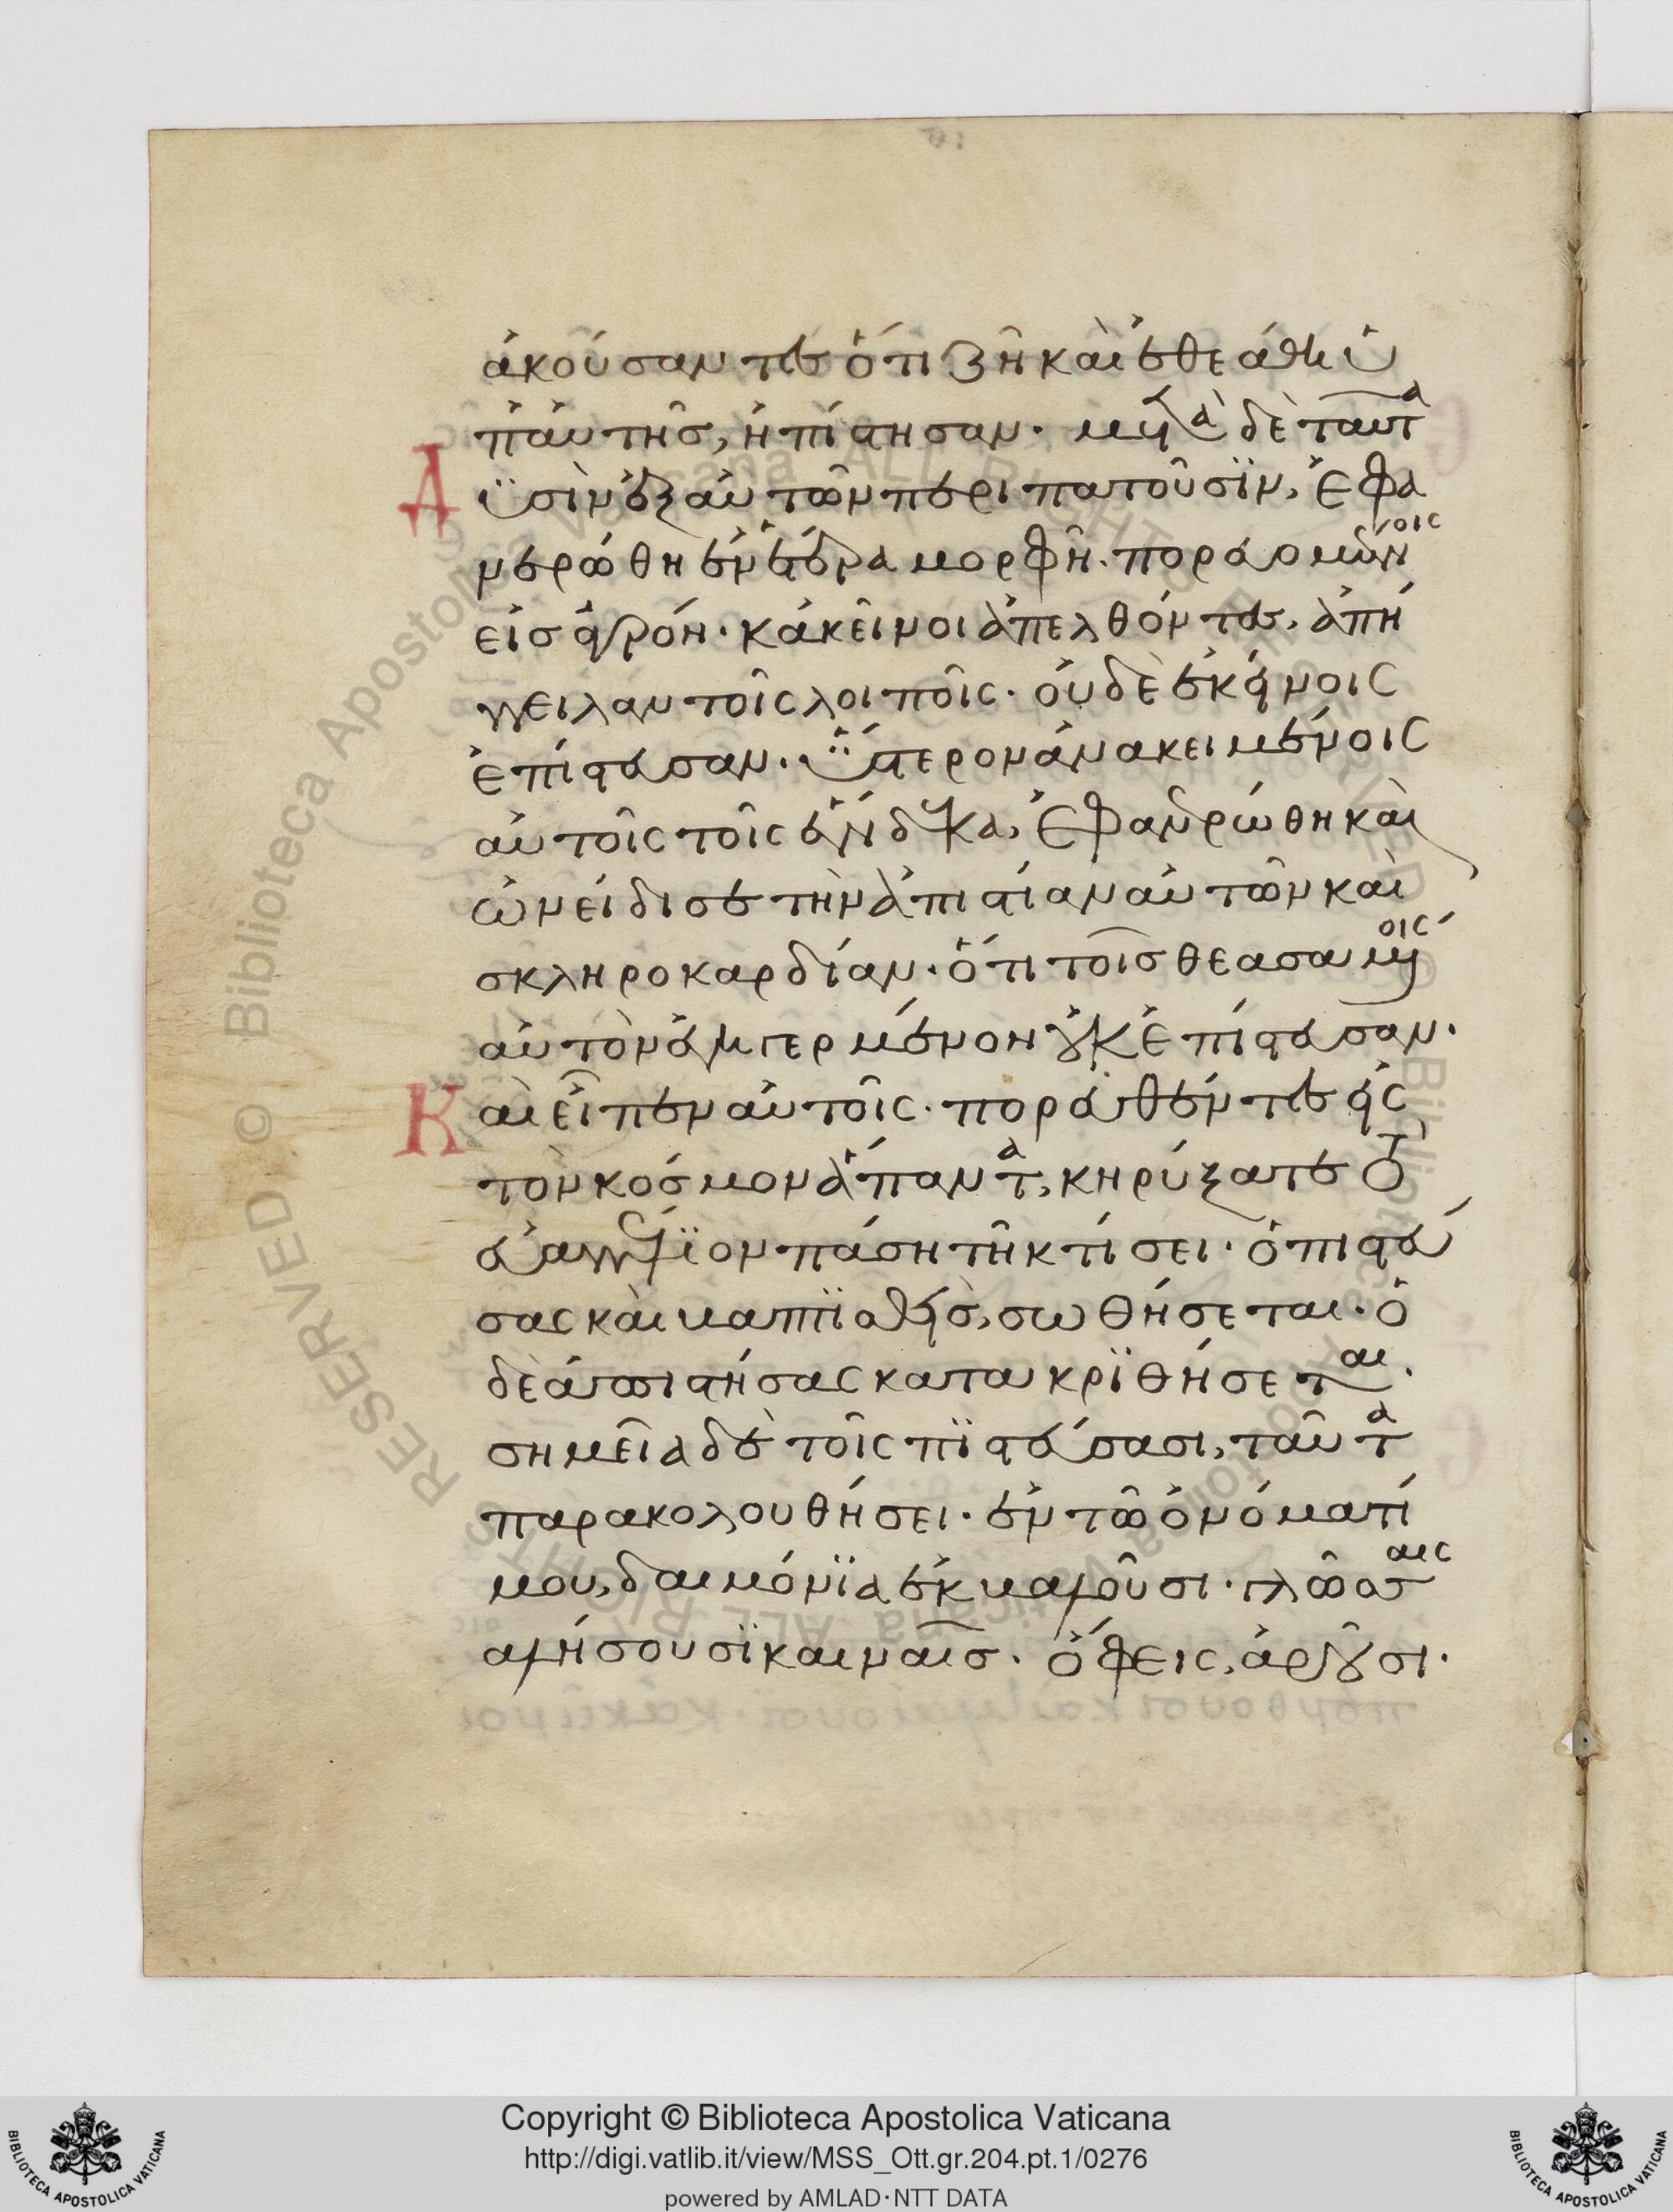 ἀκούσαντες ὅτι ζῆ καὶ ἐθεάθη ὑ
π' αὐτῆς, ἠπίστησαν· μετὰ δὲ ταῦτα
Δυσὶν ἐξ αὐτῶν περιπατοῦσϊν, ἐφα
νερώθη ἐν ἑτέρα μορφῆ· πορευομένοις
εἰς ἀγρόν· κἀκεῖνοι ἀπελθόντες, ἀπή
γγειλαν τοῖς λοιποῖς· οὐδὲ ἐκείνοις
ἐπίστευσαν· ὕστερον ἀνακειμένοις
αὐτοῖς τοῖς ἕνδεκα, ἐφανερώθη καὶ
ὠνείδισε τὴν ἀπιστίαν αὐτῶν καὶ
σκληροκαρδίαν· ὅτι τοῖς θεασαμένοις
αὐτὸν ἐγηγερμένον οὐκ ἐπίστευσαν·
Καὶ εἶπεν αὐτοῖς· πορευθέντες εἰς
τὸν κόσμον ἅπαντα, κηρύξατε τὸ
εὐαγγέλϊον πάση τῆ κτίσει· ὁ πιστεύ
σας καὶ βαπτϊσθεὶς, σωθήσεται· ὁ
δὲ ἀπιστήσας κατακρϊθήσεται·
σημεῖα δὲ τοῖς πϊστεύσασι, ταῦτα
παρακολουθήσει· ἐν τῶ ὀνόματί
μου, δαιμόνϊα ἐκβαλοῦσι· γλώσσαις
λαλήσουσϊ καιναῖς· ὄφεις, ἀροῦσι·
Copyright © Biblioteca Apostolica Vaticana
http://digi.vatlib.it/view/MSS_Ott.gr.204.pt.1/0276
powered by AMLAD·NTT DATA
BIBLIOTECA APOSTOLICA VATICANA
BIBLIOTECA APOSTOLICA VATICANA